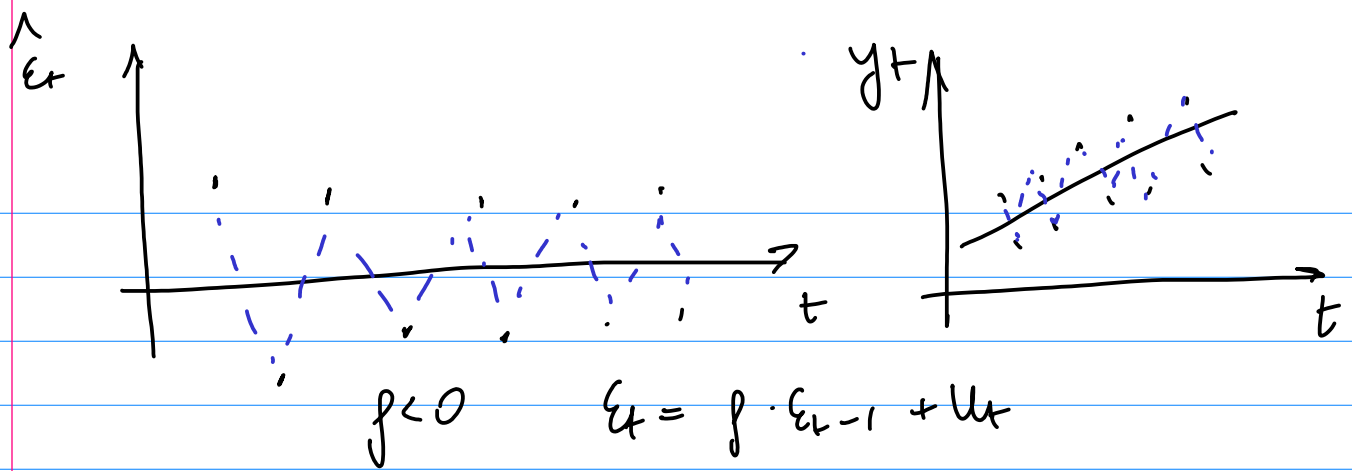 ε̂t
yt
t
t
ρ<0 εt = ρ · εt-1 + ut